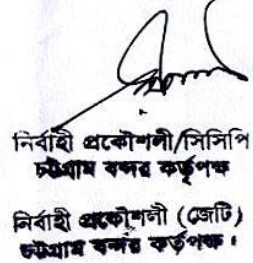 নির্বাহী প্রকৌশলী/সিসিপি
চট্টগ্রাম বন্দর কর্তৃপক্ষ
নির্বাহী প্রকৌশলী (জেটি)
চট্টগ্রাম বন্দর কর্তৃপক্ষ।